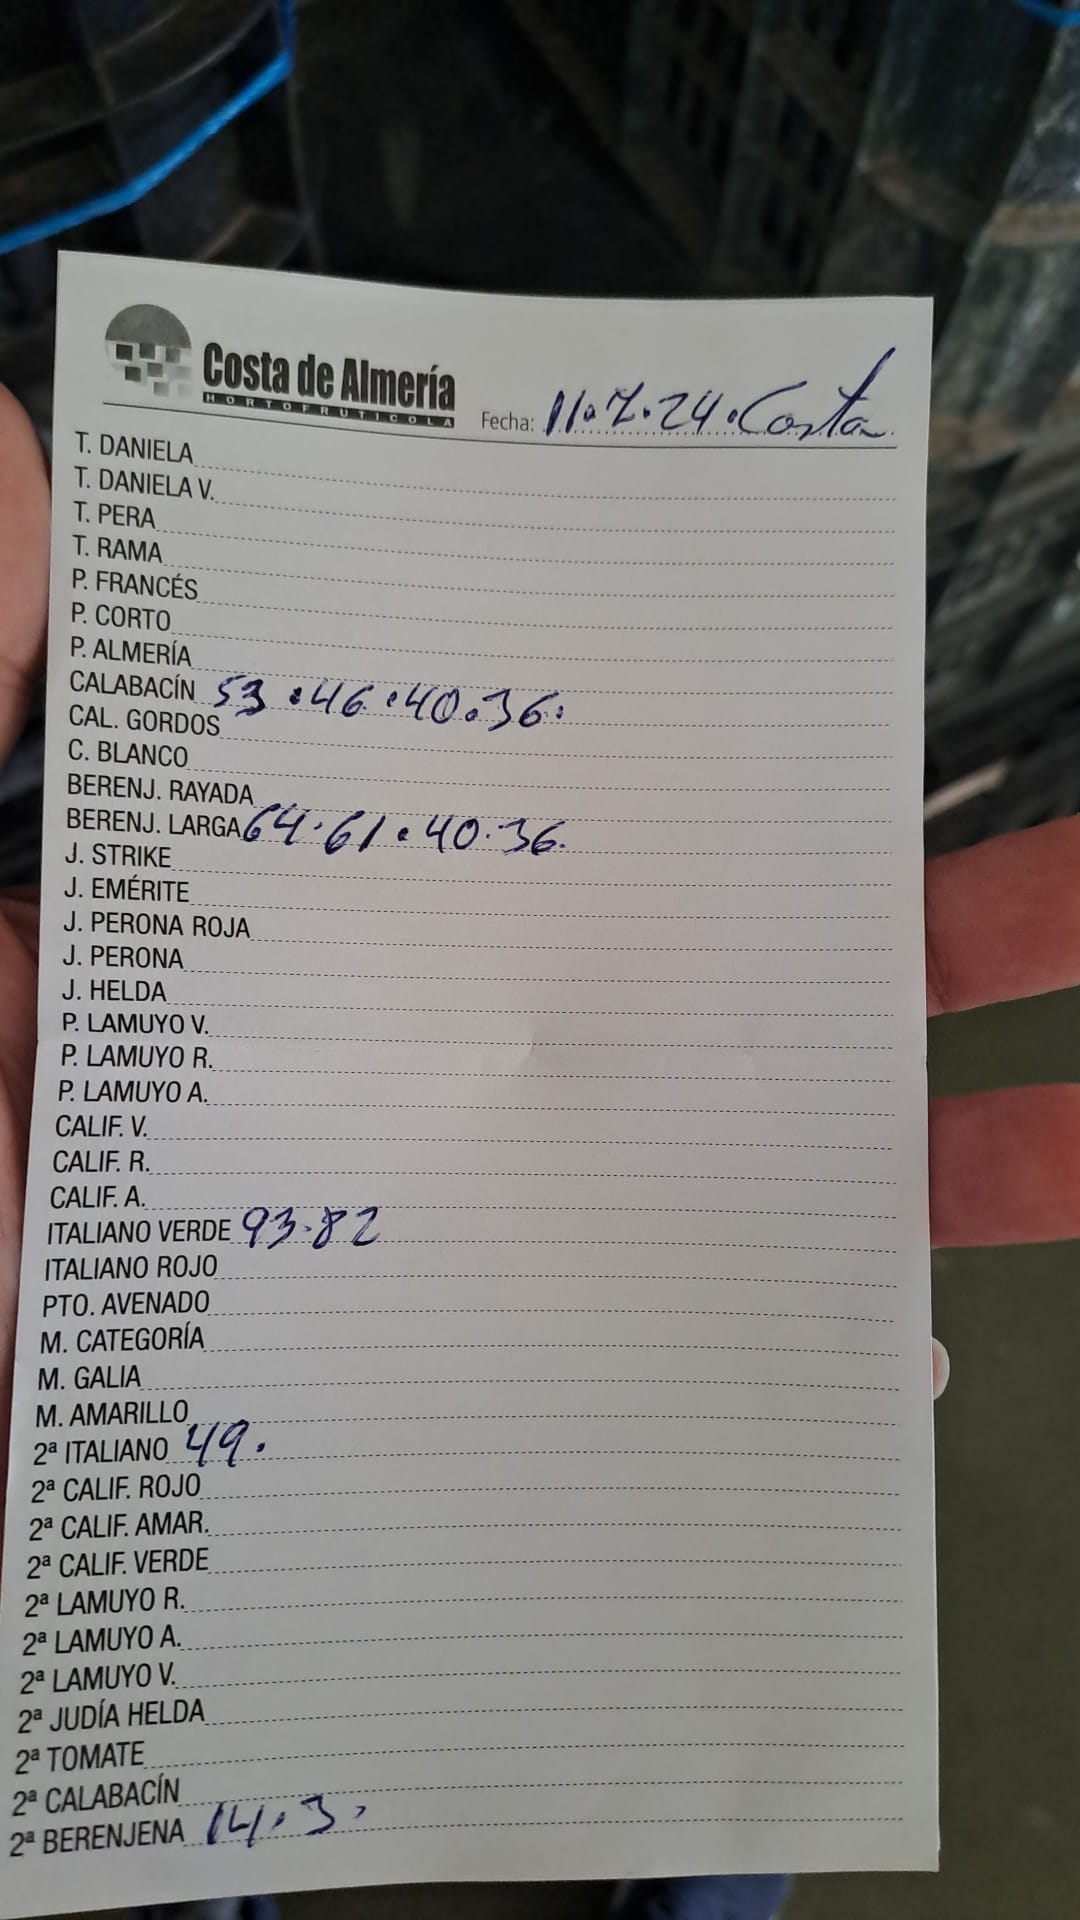 Costa de Almería
HORTOFRUTICOLA
Fecha: 11.7.24. Costa
T. DANIELA
T. DANIELA V.
T. PERA
T. RAMA
P. FRANCÉS
P. CORTO
P. ALMERÍA
CALABACÍN 53.46.40.36.
CAL. GORDOS
C. BLANCO
BERENJ. RAYADA
BERENJ. LARGA 64.61.40.36.
J. STRIKE
J. EMÉRITE
J. PERONA ROJA
J. PERONA
J. HELDA
P. LAMUYO V.
P. LAMUYO R.
P. LAMUYO A.
CALIF. V.
CALIF. R.
CALIF. A.
ITALIANO VERDE 93.82
ITALIANO ROJO
PTO. AVENADO
M. CATEGORÍA
M. GALIA
M. AMARILLO
2ª ITALIANO 49.
2ª CALIF. ROJO
2ª CALIF. AMAR.
2ª CALIF. VERDE
2ª LAMUYO R.
2ª LAMUYO A.
2ª LAMUYO V.
2ª JUDÍA HELDA
2ª TOMATE
2ª CALABACÍN
2ª BERENJENA 14.3.